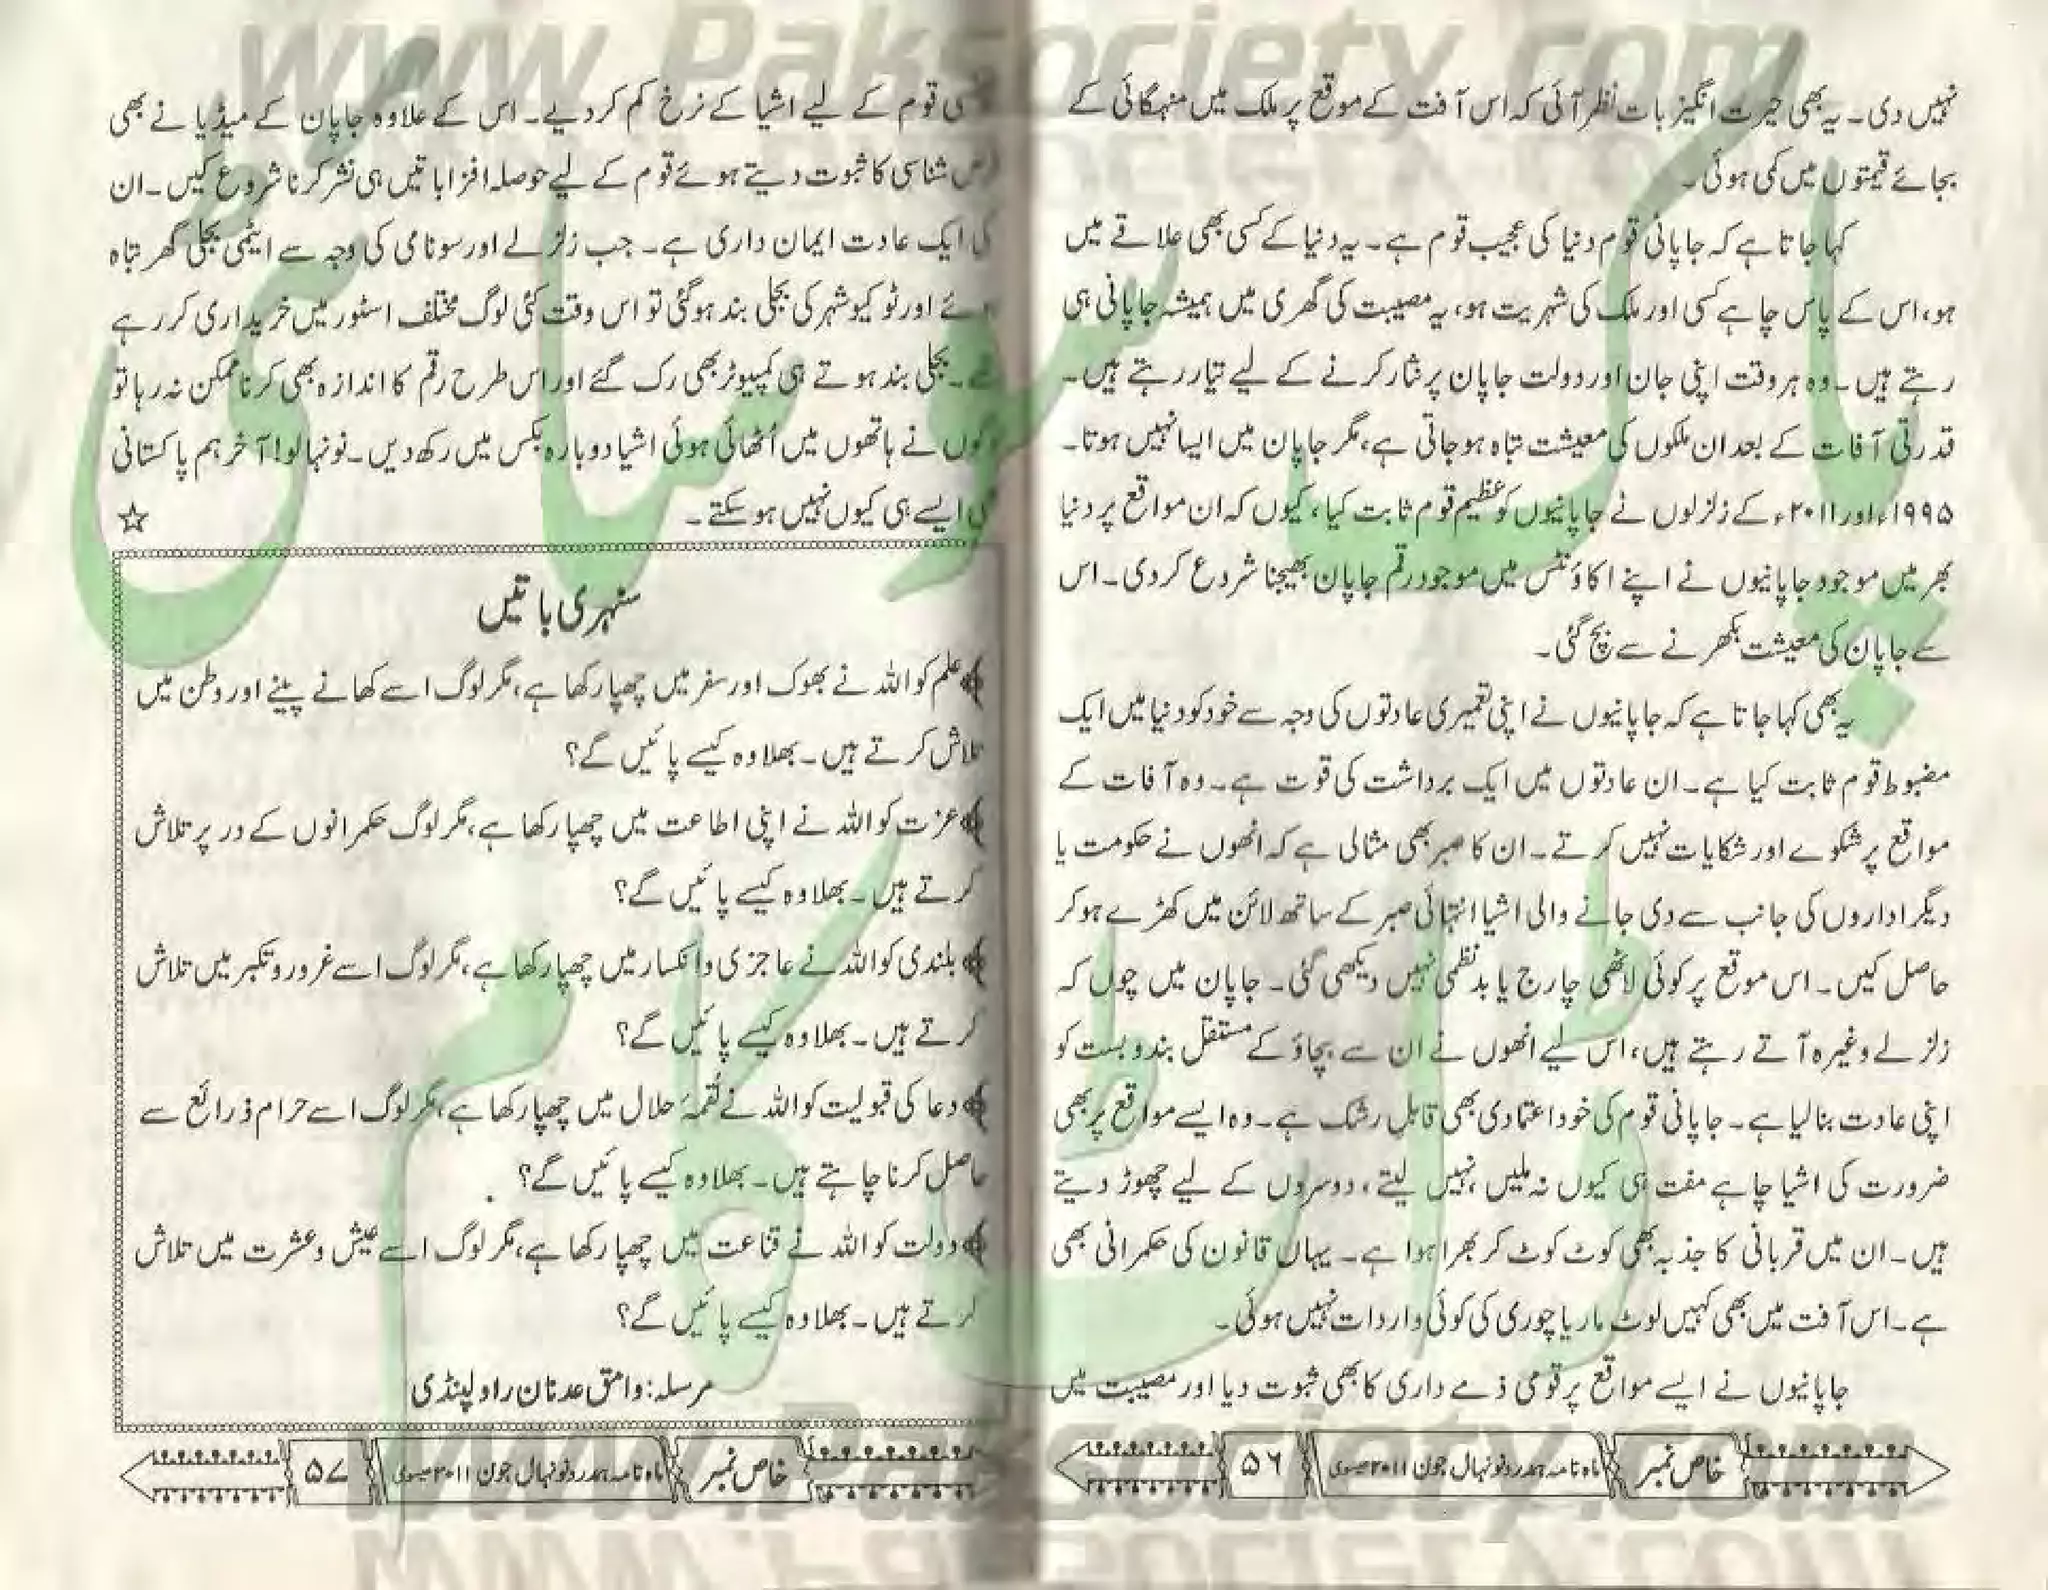 نہیں دی۔ یہ بھی حیرت انگیز بات نظر آئی کہ اس آفت کے موقع پر ملک میں منہگائی کے
بجائے قیمتوں میں کمی ہوئی۔
کہا جاتا ہے کہ جاپانی قوم دنیا کی عجیب قوم ہے۔ یہ دنیا کے کسی بھی علاقے میں
ہو، اس کے پاس چاہے کسی اور ملک کی شہریت ہو، یہ مصیبت کی گھڑی میں ہمیشہ جاپانی ہی
رہتے ہیں۔ وہ ہر وقت اپنی جان اور دولت جاپان پر نثار کرنے کے لیے تیار رہتے ہیں۔
قدرتی آفات کے بعد ان ملکوں کی معیشت تباہ ہو جاتی ہے، مگر جاپان میں ایسا نہیں ہوتا۔
۱۹۹۵ء اور ۲۰۱۱ء کے زلزلوں نے جاپانیوں کو عظیم قوم ثابت کیا، کیوں کہ ان مواقع پر دنیا
بھر میں موجود جاپانیوں نے اپنے اکاؤنٹس میں موجود رقم جاپان بھیجنا شروع کر دی۔ اس
سے جاپان کی معیشت بکھرنے سے بچ گئی۔
یہ بھی کہا جاتا ہے کہ جاپانیوں نے اپنی تعمیری عادتوں کی وجہ سے خود کو دنیا میں ایک
مضبوط قوم ثابت کیا ہے۔ ان عادتوں میں ایک برداشت کی قوت ہے۔ وہ آفات کے
مواقع پر شکوے اور شکایات نہیں کرتے۔ ان کا صبر بھی مثالی ہے کہ انھوں نے حکومت یا
دیگر اداروں کی جانب سے دی جانے والی اشیا انتہائی صبر کے ساتھ لائن میں کھڑے ہو کر
حاصل کیں۔ اس موقع پر کوئی لاٹھی چارج یا بدنظمی نہیں دیکھی گئی۔ جاپان میں چوں کہ
زلزلے وغیرہ آتے رہتے ہیں، اس لیے انھوں نے ان سے بچاؤ کے مستقل بندوبست کو
اپنی عادت بنا لیا ہے۔ جاپانی قوم کی خود اعتمادی بھی قابلِ رشک ہے۔ وہ ایسے مواقع پر بھی
ضرورت کی اشیا چاہے مفت ہی کیوں نہ ملیں، نہیں لیتے، دوسروں کے لیے چھوڑ دیتے
ہیں۔ ان میں قربانی کا جذبہ بھی کوٹ کوٹ کر بھرا ہوا ہے۔ یہاں قانون کی حکمرانی بھی
ہے۔ اس آفت میں بھی کہیں لوٹ مار یا چوری کی کوئی واردات نہیں ہوئی۔
جاپانیوں نے ایسے مواقع پر قومی ذمے داری کا بھی ثبوت دیا اور مصیبت میں
خاص نمبر ماہ نامہ ہمدرد نونہال جون ۲۰۱۱ عیسوی ۵۶
قوم کے لیے اشیا کے نرخ کم کر دیے۔ اس کے علاوہ جاپان کے میڈیا نے بھی
شناسی کا ثبوت دیتے ہوئے قوم کے لیے حوصلہ افزا باتیں ہی نشر کرنا شروع کیں۔ ان
کی ایک عادت ایمان داری ہے۔ جب زلزلے اور سونامی کی وجہ سے ایٹمی بجلی گھر تباہ
ہوئے اور ٹوکیو شہر کی بجلی بند ہو گئی تو اس وقت کئی لوگ مختلف اسٹور میں خریداری کر رہے
تھے۔ بجلی بند ہوتے ہی کمپیوٹر بھی رک گئے اور اس طرح رقم کا اندازہ بھی کرنا ممکن نہ رہا تو
لوگوں نے ہاتھوں میں اُٹھائی ہوئی اشیا دوبارہ بکس میں رکھ دیں۔ نونہالو! آخر ہم پاکستانی
بھی ایسے ہی کیوں نہیں ہو سکتے۔ ☆
سنہری باتیں
علم کو اللہ نے بھوک اور سفر میں چھپا رکھا ہے، مگر لوگ اسے کھانے پینے اور وطن میں
تلاش کرتے ہیں۔ بھلا وہ کیسے پائیں گے؟
عزت کو اللہ نے اپنی اطاعت میں چھپا رکھا ہے، مگر لوگ حکمرانوں کے در پر تلاش
کرتے ہیں۔ بھلا وہ کیسے پائیں گے؟
بلندی کو اللہ نے عاجزی و انکسار میں چھپا رکھا ہے، مگر لوگ اسے غرور و تکبر میں تلاش
کرتے ہیں۔ بھلا وہ کیسے پائیں گے؟
دعا کی قبولیت کو اللہ نے لُقمۂ حلال میں چھپا رکھا ہے، مگر لوگ اسے حرام ذرائع سے
حاصل کرنا چاہتے ہیں۔ بھلا وہ کیسے پائیں گے؟
دولت کو اللہ نے قناعت میں چھپا رکھا ہے، مگر لوگ اسے عیش و عشرت میں تلاش
کرتے ہیں۔ بھلا وہ کیسے پائیں گے؟
مرسلہ: وامق عدنان راولپنڈی
خاص نمبر ماہ نامہ ہمدرد نونہال جون ۲۰۱۱ عیسوی ۵۷
www.Paksociety.com
پاک سوسائٹی
ڈاٹ کام
www.Paksociety.com